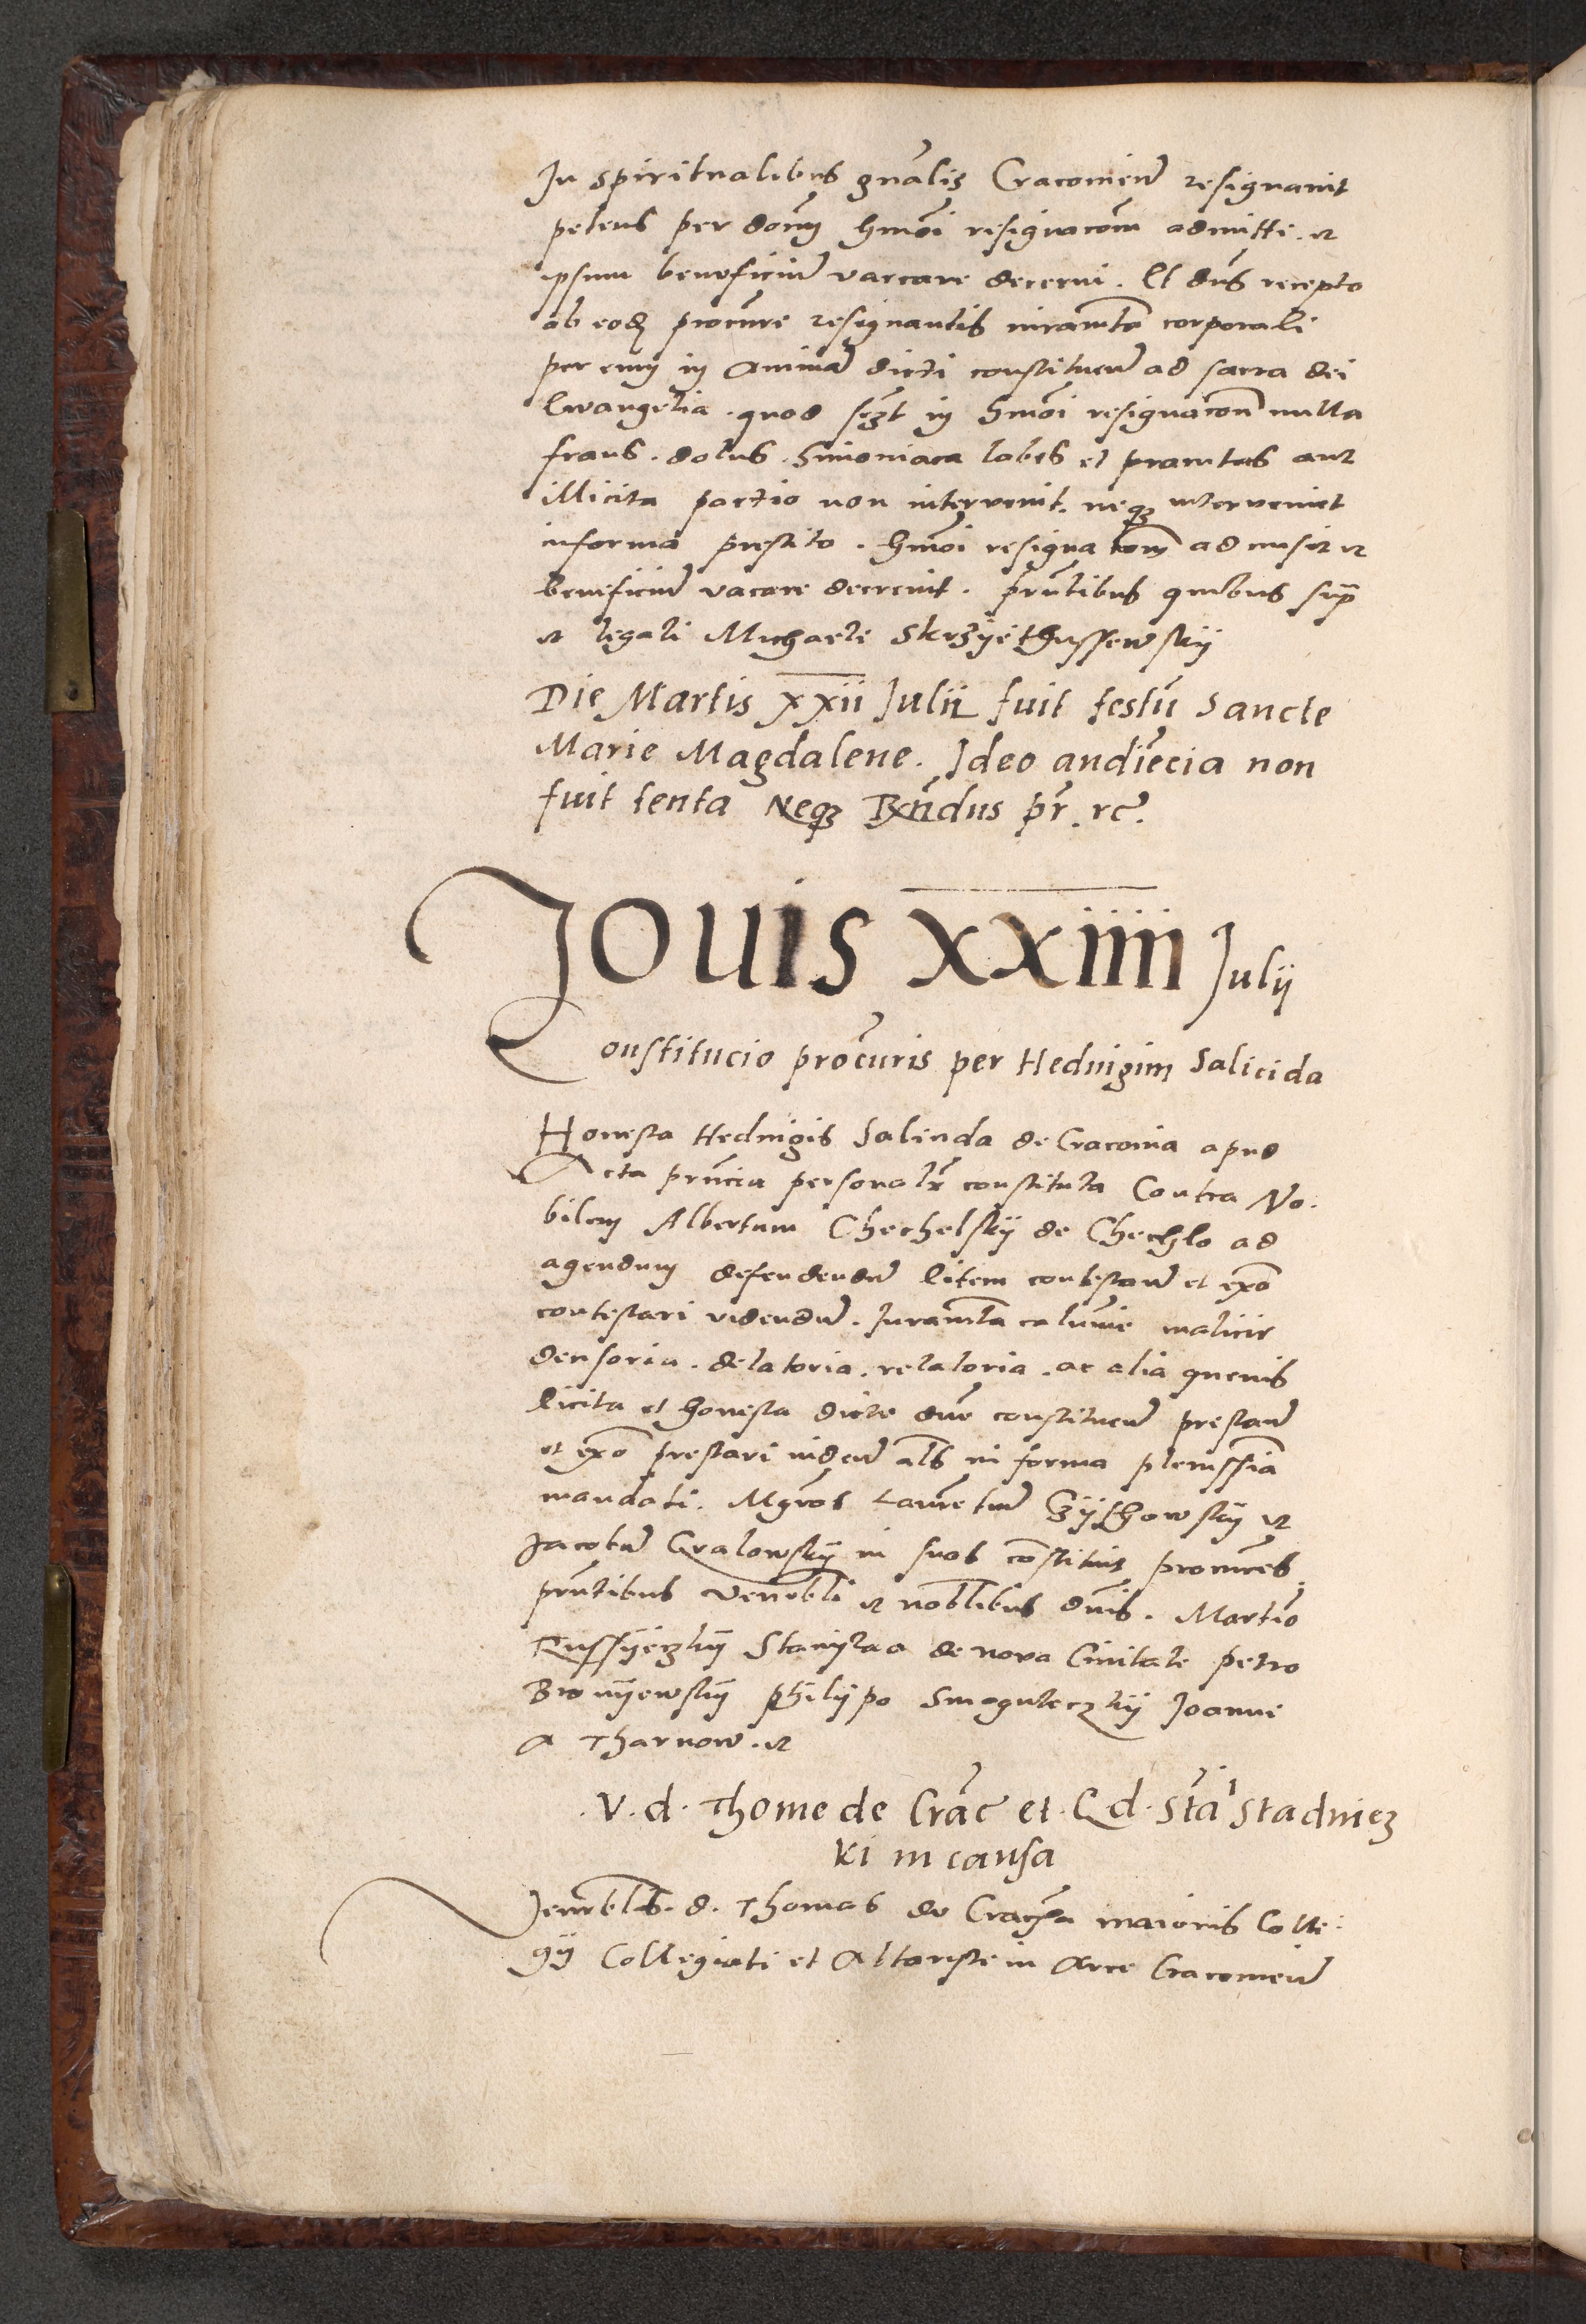 In spiritualibus gnãlis Cracoviens̃ resignavit
petens per dom̃ hmoĩ resignacoñm admitti. et
ipsum beneficiu̅ vaccare decerni. Et dñs recepto
ab eodẽ procũre resignantis iuramẽto corporali
per eum in animã dicti constituen̅ ad sacra dei
Ewangelia. quod in hmoĩ resignacoñ nulla
fraus. dolus. Simoniaca labes et pravitas aut
illicita pactio non intervenit. neqꝫ interveniet
in forma prestito. hmoĩ resignacoñm admisit et
beneficiu̅ vacare decrevit. Prñtibus quibus supᷓ
et legali Michaele Skrzijethussewskij
Die Martis xxii Julii fuit festũ Sancte
Marie Magdalene. Ideo audiẽcia non
fuit tenta Neqꝫ Rx̃ndus pr̃. rc̃.
Jouis xxiiii Julij
Constitucio procũris per Hedvigim Salicida
Honesta Hedvigis Salicida de Cracovia apud
Acta prñcia personalr̃ constituta Contra No-
bilem Albertum Chechelskij de Chechlo ad
agendum defendendu̅ litem contestan̅ et exõ
contestari videndu̅. Iuramẽta calumñie malicie
densoria. delatoria. relatoria. ac alia quevis
licita et honesta dicte dñe constituen̅ prestan̅
et exõ prestari viden̅ als̃ in forma plenissĩa
mandati. Mgr̃os Laurẽtiu̅ et
Jacobu̅ Gralowskij in suos cõstituit procũres
prñtibus venerãbli et nobl̃ibus dñis. Martĩo
Russijeczkij Stanijlao de nova Civitate petro
Bronijewskij philippo Smaguleczkij Joanne
a Tharnow. et
.V. d. Thome de Crac̃ et. G d. Stã Stadniez
ki in causa
Venerãblis. d. Thomas de Cracõvia maioris Colle-
gij Collegiati et Altariste in Arce Cracovien̅